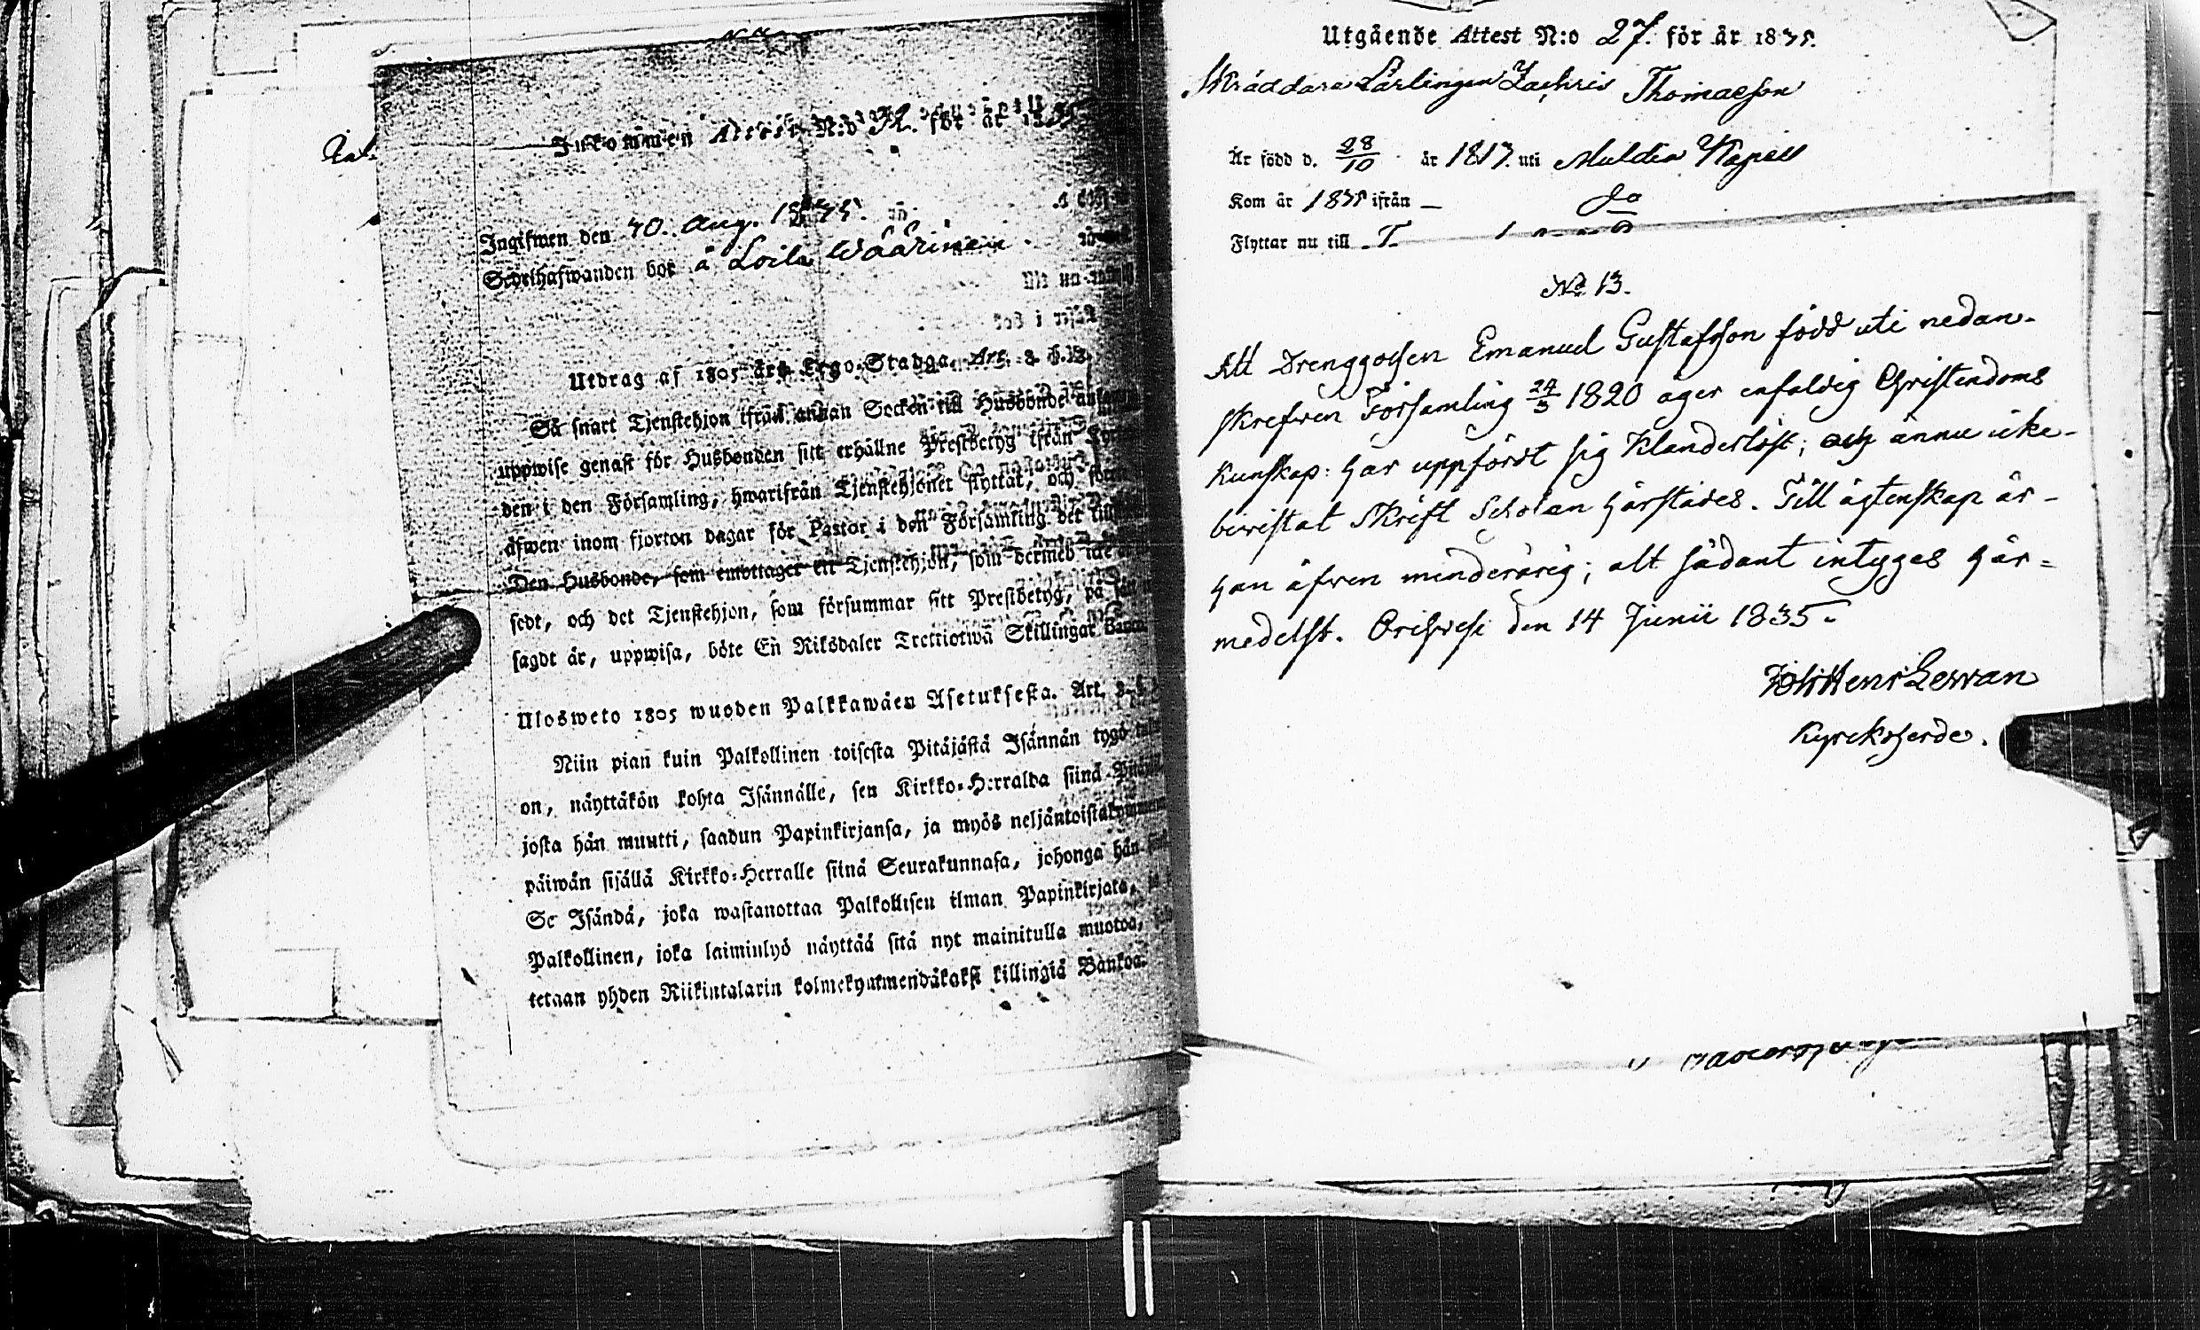 Inkommen Attest N:o 32. för år 1835
Ingifwen den 30. Aug. 1835.
Sedelhafwanden bor å Loila Wäärinen.
Utdrag af 1805 års Lego-Stadga. Art. 3. §. 12.
Så snart Tjenstehjon ifrån annan Socken till Husbonde
uppwise genast för Husbonden sitt erhållne Prestbetyg ifrån
den i den Församling, hwarifrån Tjenstehjonet flyttat, och
äfwen inom fjorton dagar för Pastor i den Församling det
Den Husbonde, som emottager ett Tjenstehjon, som dermed icke
sedt, och det Tjenstehjon, som försummar sitt Prestbetyg, på
sagdt är, uppwisa, böte En Riksdaler Trettiotwå Skillingar Banco
Ulosweto 1805 wuoden Palkkawäen Asetuksesta. Art. 3.
Niin pian kuin Palkollinen toisesta Pitäjästä Isännän tygö
on, näyttäkön kohta Isännälle, sen Kirkko-Herralda siinä
josta hän muutti, saadun Papinkirjansa, ja myös neljäntoistakymmenen
päiwän sisällä Kirkko-Herralle siinä Seurakunnasa, johonga hän
Se Isändä, joka wastanottaa Palkollisen ilman Papinkirjata,
Palkollinen, joka laiminlyö näyttää sitä nyt mainitulla muotoa,
tetaan yhden Riikintalarin kolmekymmendäkaksi killingiä Bankoa.
Utgående Attest N:o 27. för år 1835.
Skräddare Lärlingen Zachris Thomasson
Är född d. 28/10 år 1817. uti Muldia Kapell
Kom år 1835 ifrån — do
Flyttar nu till T.
No 13.
Att Drenggossen Emanuel Gustafsson född uti nedan-
skrefven Församling 24/3 1820 äger enfaldig Christendoms
kunskap: har uppfördt sig Klanderlöst; och ännu icke-
bevistat Skrift Scholan härstädes. Till ägtenskap är-
han äfven minderårig; alt sådant intyges här=
medelst. Orihvesi den 14 Junii 1835.
Joh Henr Lewan
Kyrckoherde.